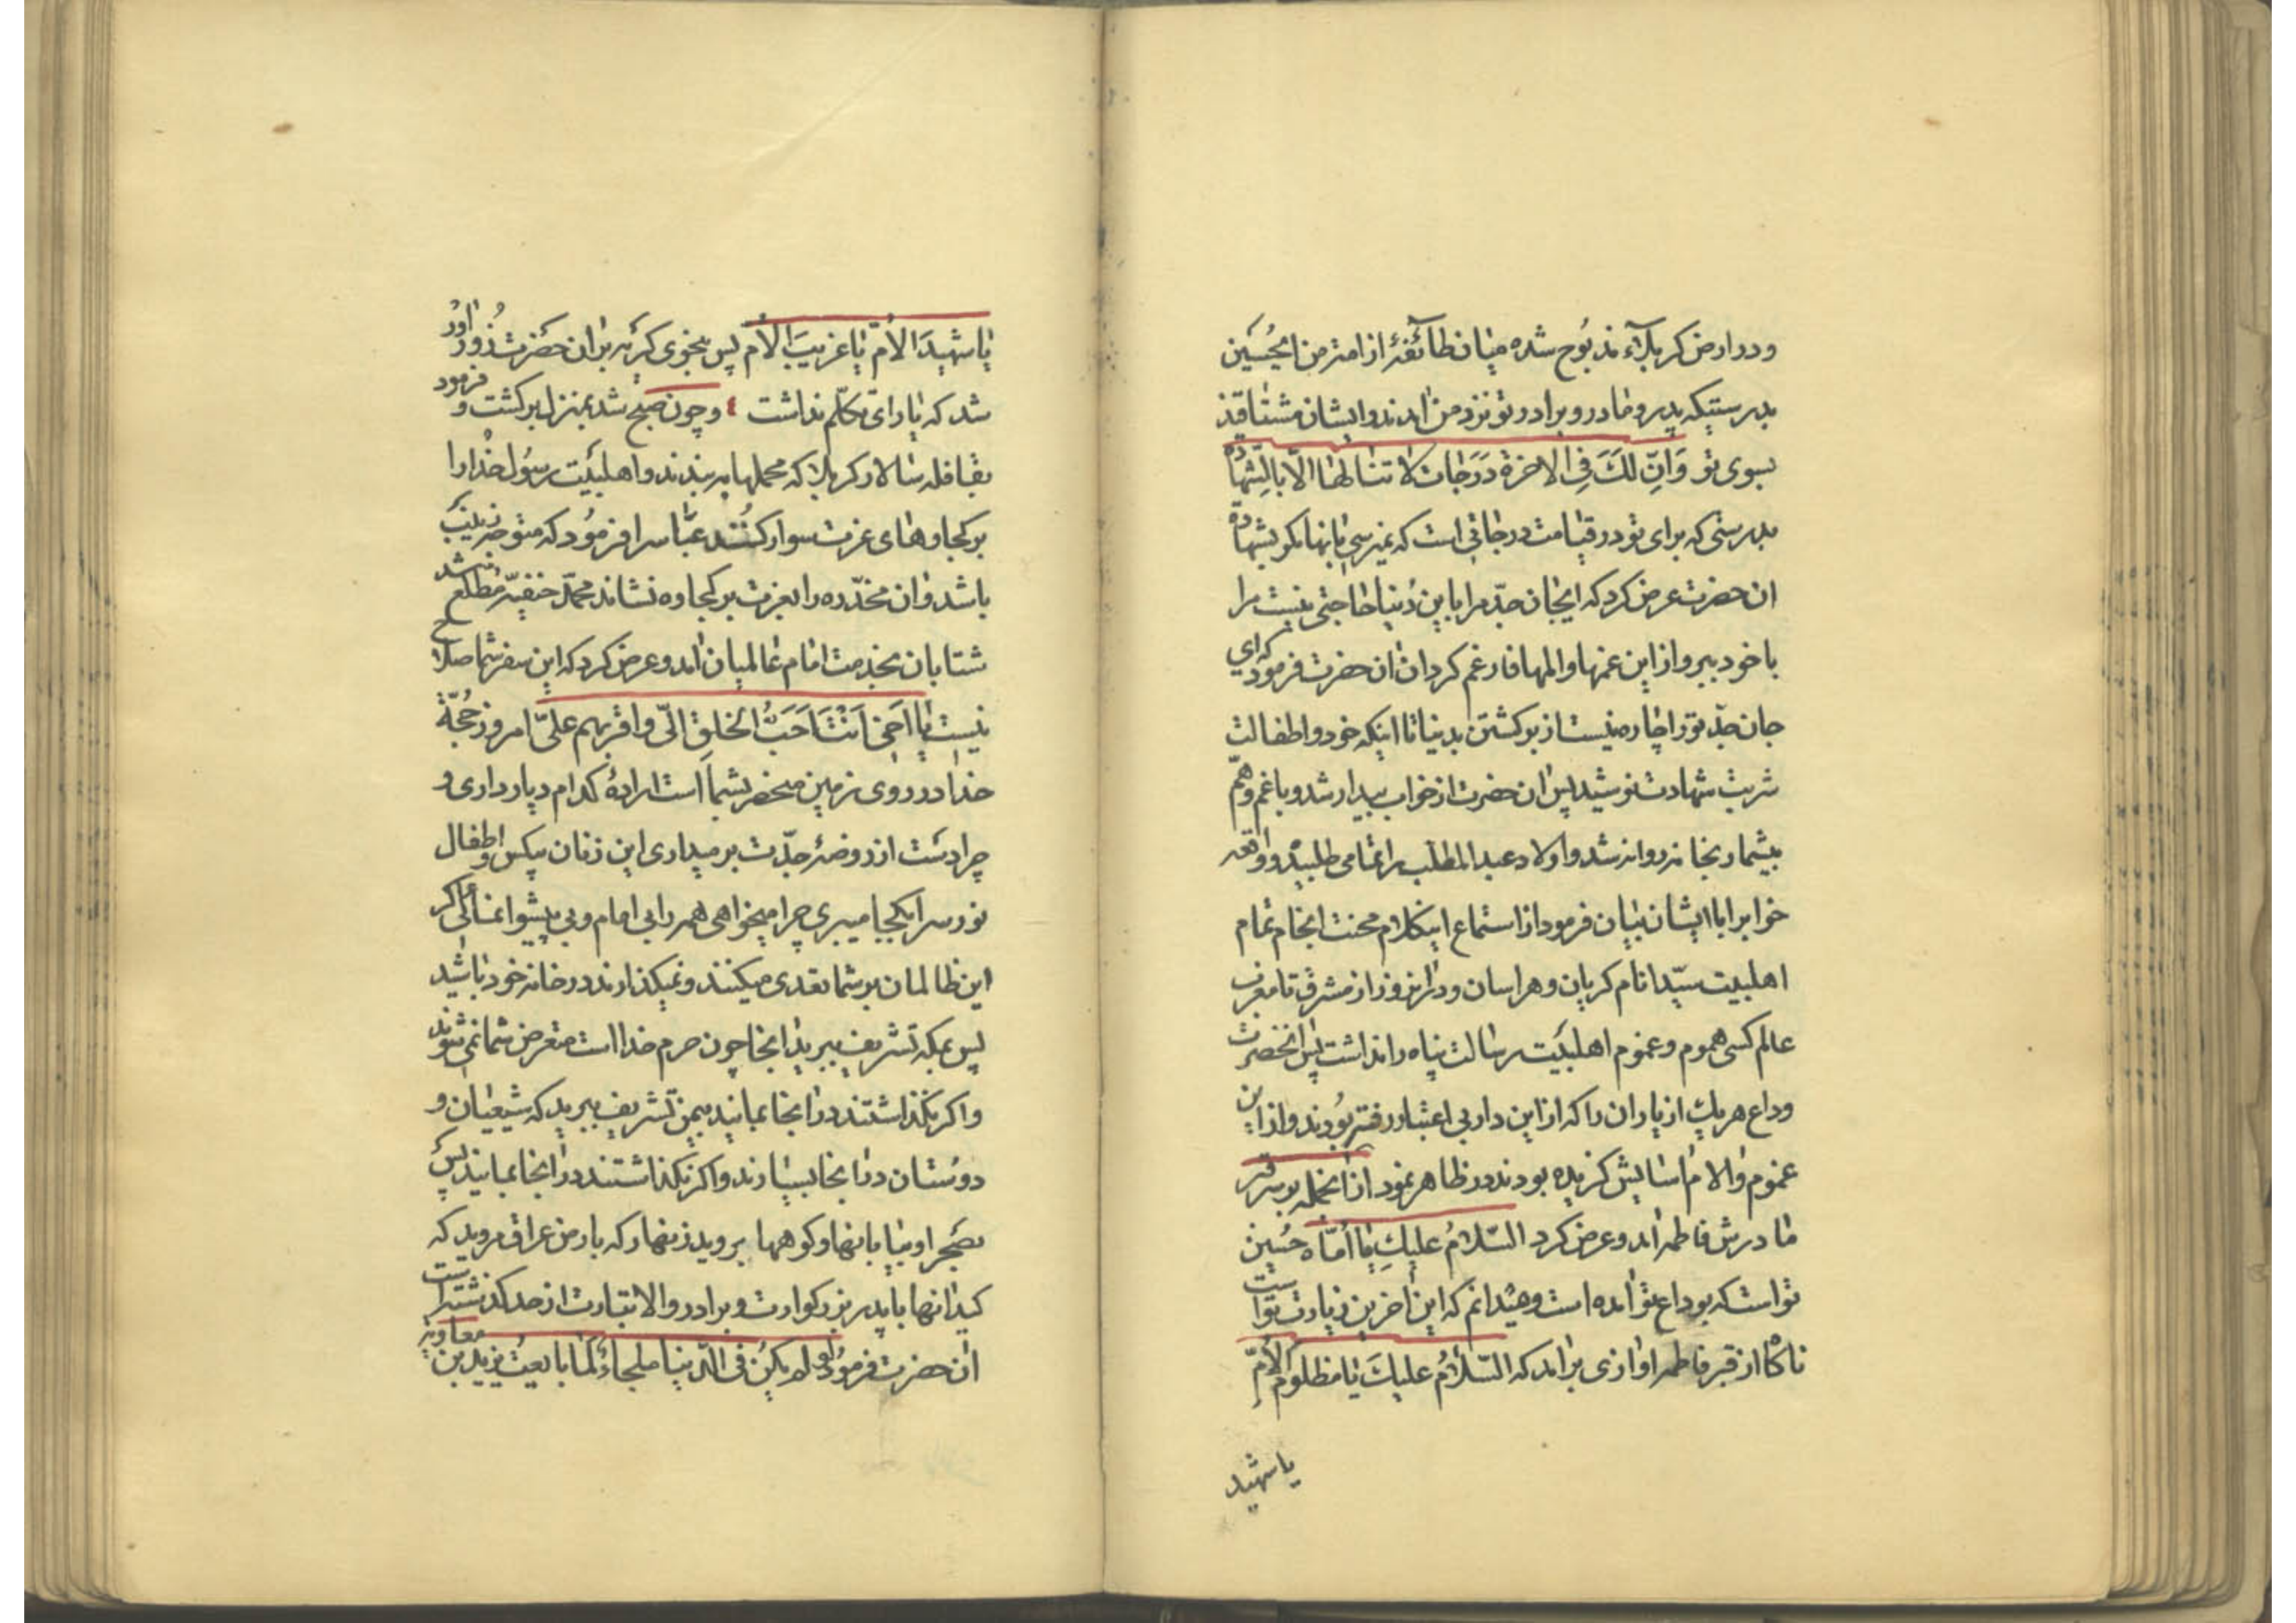 ودر ارض کربلاء مذبوح شده میان طائفهٔ از امت من ایحسین
بدرستیکه پدر و مادر و برادر تو نزد من امدند و ایشان مشتاقند
بسوی تو وَاِنّ لَكَ فِی الاخرة دَرَجات لا تنالها الّا بالشّهادة
بدرستی که برای تو در قیامت درجاتی است که نمیرسی بانها مکر بشهادة
ان حضرت عرض کرد که ایجان جدّ مرا باین دُنیا حاجتی نیست مرا
با خود ببر و از این غمها و المها فارغم کردان ان حضرت فرمود که ای
جان جدّ تو را چاره نیست از برکشتن بدنیا تا اینکه خود و اطفالت
شربت شهادت نوشید پس ان حضرت از خواب بیدار شد و با غم و همّ
بیشمار بخانه روانه شد و اولاد عبد المطلب را تمامی طلبید و واقعه
خوابرا با ایشان بیان فرمود از استماع اینکلام محنت انجام تمام
اهلبیت سیّد انام کریان و هراسان و در انروز از مشرق تا مغرب
عالم کسی هموم و غموم اهلبیت رسالت پناه را نداشت پس انحضرت
وداع هریك از یاران را که از این دار بی اعتبار رفته بودند و از این
غموم والام اسایش کزیده بودند در ظاهر نمود از انجمله بر سر قبر
مادرش فاطمه امد و عرض کرد السّلامُ علیكِ یا اُمّاه حسین
تو است که بوداع تو امده است و میدانم که این اخرین زیارت تو است
ناکاه از قبر فاطمه اوازی برامد که السّلامُ علیكَ یا مظلومَ الاُمّ
یا شهید
یا شهیدَ الاُمّ یا غریبَ الاُم پس بنحوی کریه بر ان حضرت زور اور
شد که یارای تکلّم نداشت ٤ و چون صبح شد بمنزل برکشت و فرمود
بقافله سالار کربلا که محملها به بندند و اهلبیت رسُول خدا را
بر کجاوهای عزت سوار کنند عبّاس را فرمود که متوجه زینب
باشد و ان مخدّره را بعزت بر کجاوه نشاند محمّد حنفیّه مطلع شد
شتابان بخدمت امام عالمیان امد و عرض کرد که این سفر شما صلاح
نیست یا اَخی اَنتَ اَحَبُّ الخلقِ الیّ واقربهم علیّ امروز حُجّة
خدا در روی زمین منحصر بشما است ارادهٔ کدام دیار داری و
چرا دست از روضهٔ جدّت بر میداری این زنان بیکس و اطفال
نورس را بکجا میبری چرا میخواهی همه را بی امام و بی پیشوا نمائی اکر
این ظالمان بر شما تعدی میکنند و نمیکذارند در خانه خود باشید
پس بمکه تشریف ببرید انجا چون حرم خدا است متعرض شما نمی شوند
و اکر نکذاشتند در انجا بمانید بیمن تشریف ببرید که شیعیان و
دوستان در انجا بسیارند و اکر نکذاشتند در انجا بمانید پس
بصحرا و بیابانها و کوهها بروید زنهار که بارض عراق مروید که
کید انها با پدر بزرکوارت و برادر والاتبارت از حد کذشته است
ان حضرت فرمود لو لم یکن فی الدّنیا ملجاءٌ لما بایعتُ یزید بن معاویة